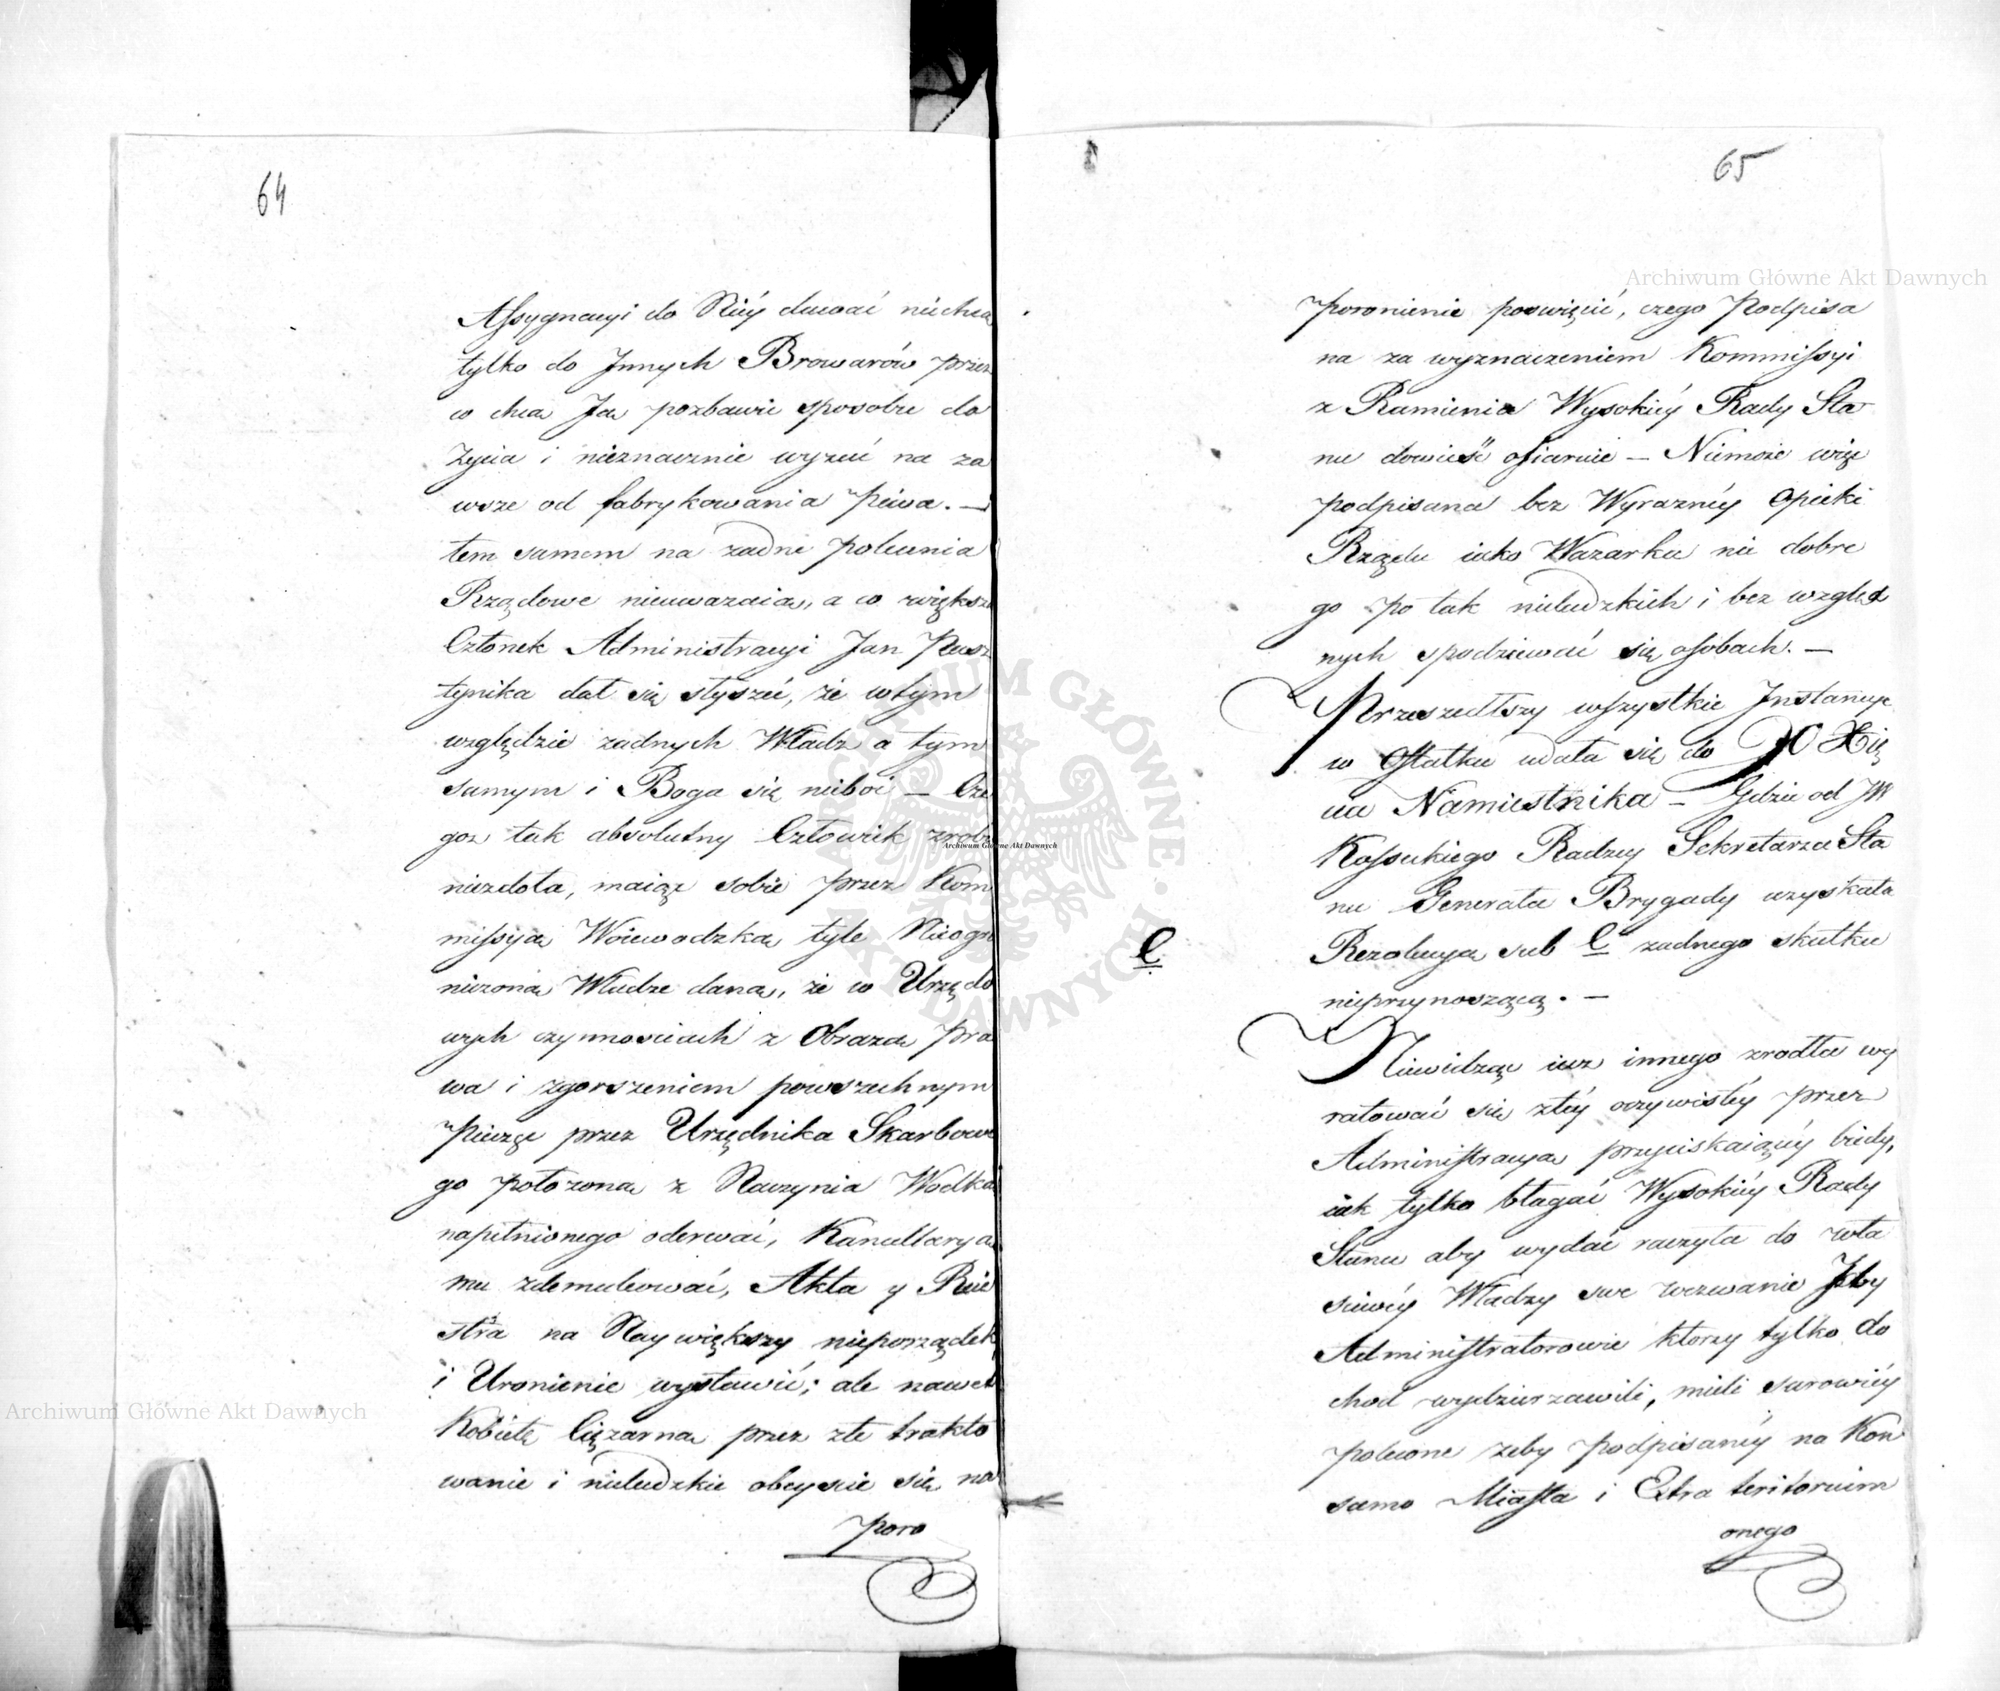 64
Assygnacyi do Niéy dawać niechcą
tylko do Jnnych Browarów przez
co chcą Ją pozbawić sposobu do
życia i nieznacznie wyzuć na za
wsze od fabrykowania Piwa. —
tem samem na żadne polecenia
Rządowe nieuważaią, a co większa
Członek Administracyi Jan Pusz
tynika dał się słyszeć, że w tym
względzie żadnych Władz a tym
samym i Boga się nieboi — Cze
goż tak absolutny Człowiek zrobi
niezdoła, maiąc sobie przez Kom
missyą Woiewodzką tyle Nieogra
niczoną Władzę daną, że w Urzędo
wych czynnosciach z Obrazą Pra
wa i zgorszeniem powszechnym
Pieczęć przez Urzędnika Skarbowe
go położoną z Naczynia Wodką
napełnionego oderwać, Kancellaryą
mu zdemulować, Akta y Reie
stra na Naywiększy nieporządek
i Uronienie wystawić; ale nawet
Kobietę Ciężarną przez złe trakto
wanie i nieludzkie obeyscie się na
Poro
65
Poronienie poswięcić, czego Podpisa
na za wyznaczeniem Kommissyi
z Ramienia Wysokiéy Rady Sta
nu dowieść ofiaruie — Niemoże więc
Podpisana bez Wyrazney Opieki
Rządu iako Wazarka nic dobre
go po tak nieludzkich i bez względ
nych spodziewać się osobach. —
Przeszedłszy wszystkie Jnstancye
w Ostatku udała się do JO Xię
cia Namiestnika — Gdzie od JW
Kossuckiego Radzcy Sekretarza Sta
nu Generała Brygady uzyskała
C
Rezolucyą sub C żadnego skutku
nieprzynoszącą. —
Niewidząc iuz innego zrodła wy
ratować się z téy oczywistéy przez
Administracyą przyciskaiącéy biédy,
iak tylko błagać Wysokiéy Rady
Stanu aby wydać raczyła do wła
sciwéy Władzy swe wezwanie Jżby
Administratorowie ktorzy tylko do
chod wydzierzawili, mieli surowiéy
polecone żeby Podpisanéy na Kon
samo Miasta i Extra teritorium
onego
Archiwum Główne Akt Dawnych
Archiwum Główne Akt Dawnych
Archiwum Główne Akt Dawnych
ARCHIWUM GŁÓWNE
AKT DAWNYCH